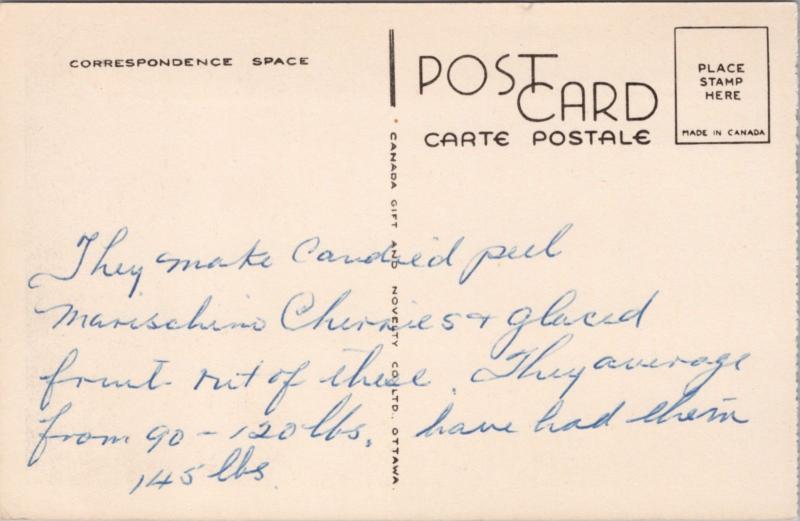 CORRESPONDENCE SPACE
POST CARD
CARTE POSTALE
PLACE
STAMP
HERE
MADE IN CANADA
CANADA GIFT AND NOVELTY CO. LTD. OTTAWA.
They make Candied peel
Marischino Cherries & glaced
fruit out of these. They average
from 90 - 120 lbs. have had them
145 lbs.